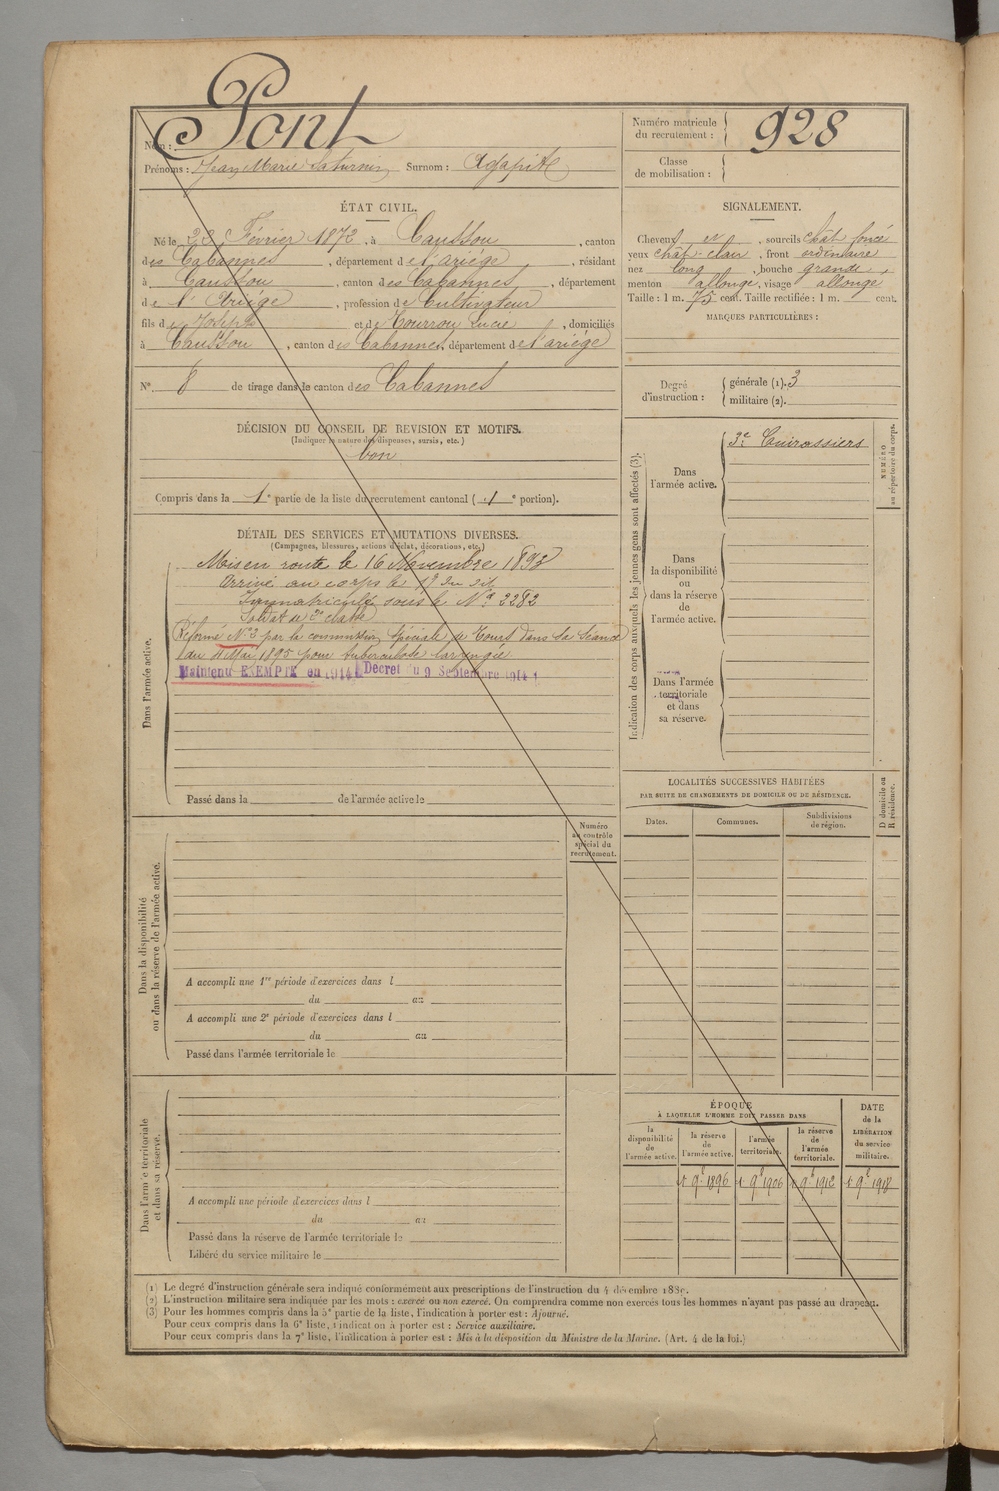 Nom : Pont
Prénoms : Jean Marie Saturnin Surnom : Agapite
Numéro matricule du recrutement : 928
Classe de mobilisation :
ÉTAT CIVIL.
Né le 23 Février 1872, à Caussou, canton
des Cabannes, département de l'ariège, résidant
à Caussou, canton des Cabannes, département
de l'Ariège, profession de Cultivateur
fils de Joseph et de Tourrou Lucie, domiciliés
à Caussou, canton des Cabannes, département de l'ariège
N° 8 de tirage dans le canton des Cabannes
DÉCISION DU CONSEIL DE REVISION ET MOTIFS.
(Indiquer la nature des dispenses, sursis, etc.)
bon
Compris dans la 1e partie de la liste du recrutement cantonal (1e portion).
DÉTAIL DES SERVICES ET MUTATIONS DIVERSES.
(Campagnes, blessures, actions d'éclat, décorations, etc.)
Dans l'armée active.
Mis en route le 16 Novembre 1893
Arrivé au corps le 17 du dit
Immatriculé sous le N° 2282
Soldat de 2e classe
Réformé N°2 par la commission spéciale de Tours dans sa séance
du 4 Mai 1895 pour tuberculose laryngée
Maintenu EXEMPTÉ en 1914 Décret du 9 Septembre 1914
Passé dans la de l'armée active le
Numéro au contrôle spécial du recrutement.
Dans la disponibilité ou dans la réserve de l'armée active.
A accompli une 1re période d'exercices dans l
du au
A accompli une 2e période d'exercices dans l
du au
Passé dans l'armée territoriale le
Dans l'armée territoriale et dans sa réserve.
A accompli une période d'exercices dans l
du au
Passé dans la réserve de l'armée territoriale le
Libéré du service militaire le
SIGNALEMENT.
Cheveux et, sourcils chât. foncé
yeux chât. clair, front ordinaire
nez long, bouche grande
menton allongé, visage allongé
Taille : 1 m. 75 cent. Taille rectifiée : 1 m. cent.
MARQUES PARTICULIÈRES :
Degré d'instruction :
générale (1). 3
militaire (2).
Indication des corps auxquels les jeunes gens sont affectés (3).
NUMÉRO au répertoire du corps.
Dans l'armée active.
3e Cuirassiers
Dans la disponibilité ou dans la réserve de l'armée active.
Dans l'armée territoriale et dans sa réserve.
LOCALITÉS SUCCESSIVES HABITÉES
PAR SUITE DE CHANGEMENTS DE DOMICILE OU DE RÉSIDENCE.
D domicile ou R résidence.
Dates. Communes. Subdivisions de région.
ÉPOQUE
À LAQUELLE L'HOMME DOIT PASSER DANS
DATE de la LIBÉRATION du service militaire.
la disponibilité de l'armée active.
la réserve de l'armée active.
l'armée territoriale.
la réserve de l'armée territoriale.
1 9e 1896 1 9e 1906 1 9e 1912 1 9e 1918
(1) Le degré d'instruction générale sera indiqué conformément aux prescriptions de l'instruction du 4 décembre 1889.
(2) L'instruction militaire sera indiquée par les mots : exercé ou non exercé. On comprendra comme non exercés tous les hommes n'ayant pas passé au drapeau.
(3) Pour les hommes compris dans la 5e partie de la liste, l'indication à porter est : Ajourné.
Pour ceux compris dans la 6e liste, l'indication à porter est : Service auxiliaire.
Pour ceux compris dans la 7e liste, l'indication à porter est : Mis à la disposition du Ministre de la Marine. (Art. 4 de la loi.)